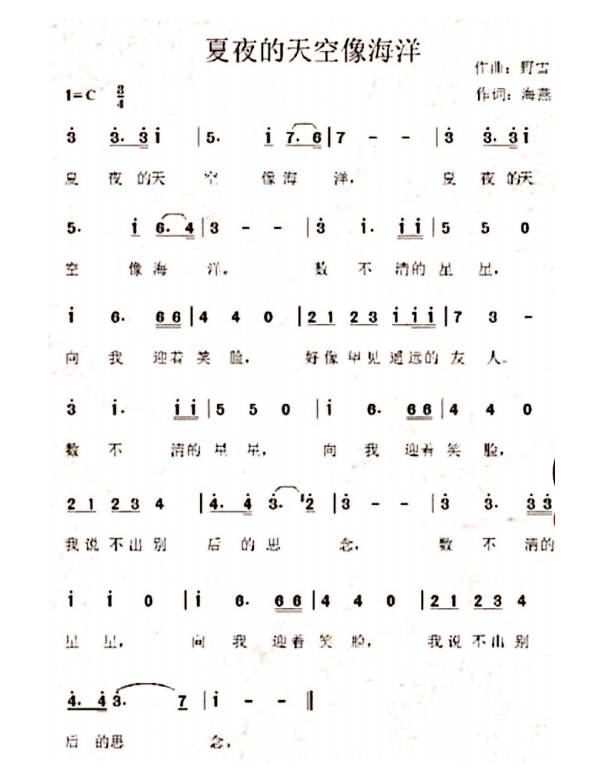 夏夜的天空像海洋
作曲：野雪
1=C 3/4
作词：海燕
3 3. 3 i | 5. i 7. 6 | 7 - - | 3 3. 3 i
夏 夜 的天 空 像海 洋， 夏 夜 的天
5. i 6. 4 | 3 - - | 3 i. i i | 5 5 0
空 像海 洋。 数 不 清的 星 星，
i 6. 6 6 | 4 4 0 | 2 1 2 3 i i i | 7 3 -
向 我 迎着 笑 脸， 好像 早见 遥远的 友 人。
3 i. i i | 5 5 0 | i 6. 6 6 | 4 4 0
数 不 清的 星 星， 向 我 迎着 笑 脸，
2 1 2 3 4 | 4. 4 3. i 2 | 3 - - | 3 3. 3 3
我说 不出 别 后 的 思 念， 数 不 清的
i i 0 | i 6. 6 6 | 4 4 0 | 2 1 2 3 4
星 星， 向 我 迎着 笑 脸， 我说 不出 别
4. 4 3. 7 | i - - ‖
后 的思 念，